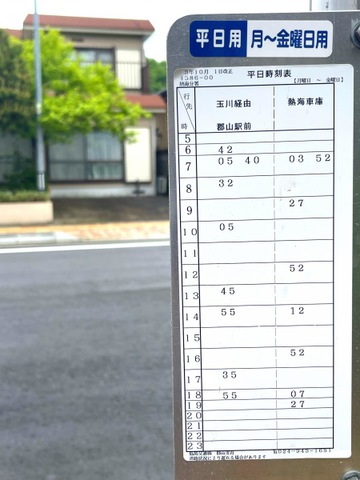 平日用 月～金曜日用
3年10月 1日改正
1586-00
平日時刻表
熱海分署 【月曜日 ～ 金曜日】
行先 時 玉川経由 郡山駅前 熱海車庫
5
6 42
7 05 40 03 52
8 32
9 27
10 05
11
12 52
13 45
14 55 12
15
16 52
17 35
18 55 07
19 27
20
21
22
23